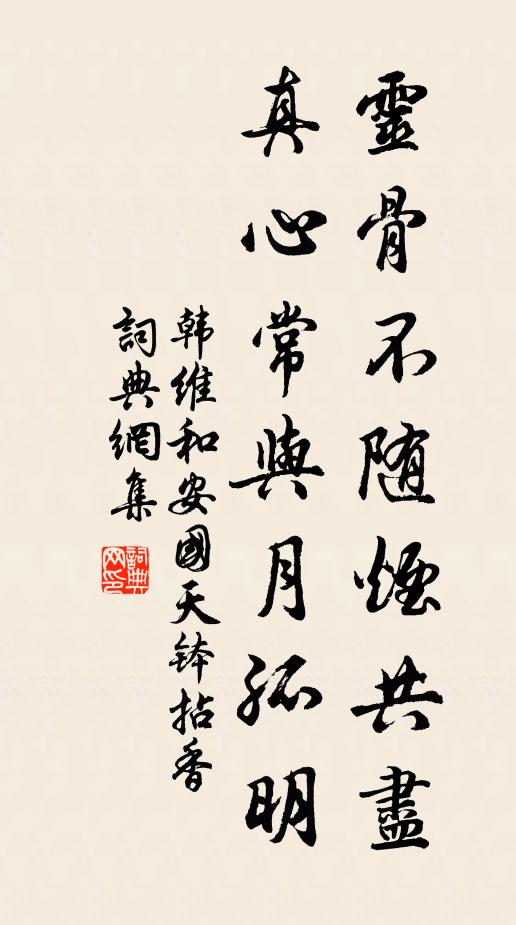 靈骨不随煙共盡
真心常與月孤明
韩維和安國天钵拈香
詞典網集
詞典網印